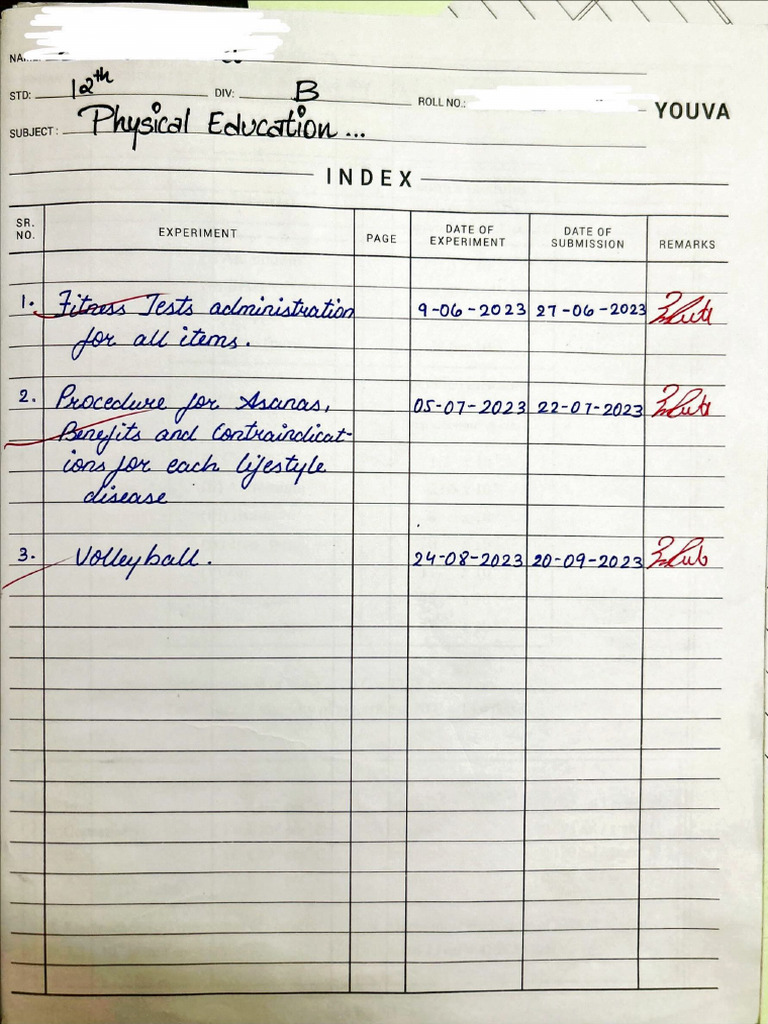 NA
STD: 12th DIV: B ROLL NO.: YOUVA
SUBJECT: Physical Education...
INDEX
SR. NO. EXPERIMENT PAGE DATE OF EXPERIMENT DATE OF SUBMISSION REMARKS
1. Fitness Tests administration 9-06-2023 27-06-2023
for all items.
2. Procedure for Asanas, 05-07-2023 22-07-2023
Benefits and Contraindicat-
ions for each lifestyle
disease
3. Volleyball. 24-08-2023 20-09-2023